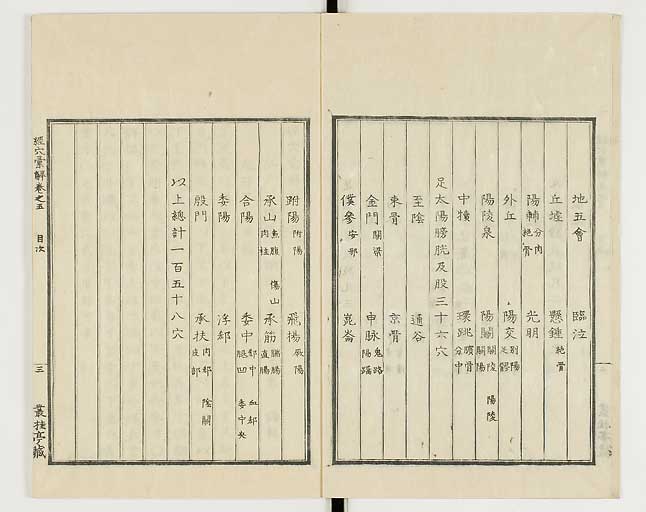 地五會 臨泣
丘墟 懸鍾 絶骨
陽輔 分肉 絶骨 光明
外丘 陽交 別陽
陽陵泉 陽關 關陵 關陽 陽陵
中犢 環跳 髖骨 分中
足太陽膀胱及股三十六穴
至陰 通谷
束骨 京骨
金門 關梁 申脉 鬼路 陽蹻
僕參 安邪 崑崙
跗陽 附陽 飛揚 厥陽
承山 魚腹 肉柱 傷山 承筋 腨腸 直腸
合陽 委中 郄中 腿凹 血郄 委中央
委陽 浮郄
殷門 承扶 肉郄 皮部 陰關
以上總計一百五十八穴
經穴彙解卷之五 目次 三 叢桂亭藏